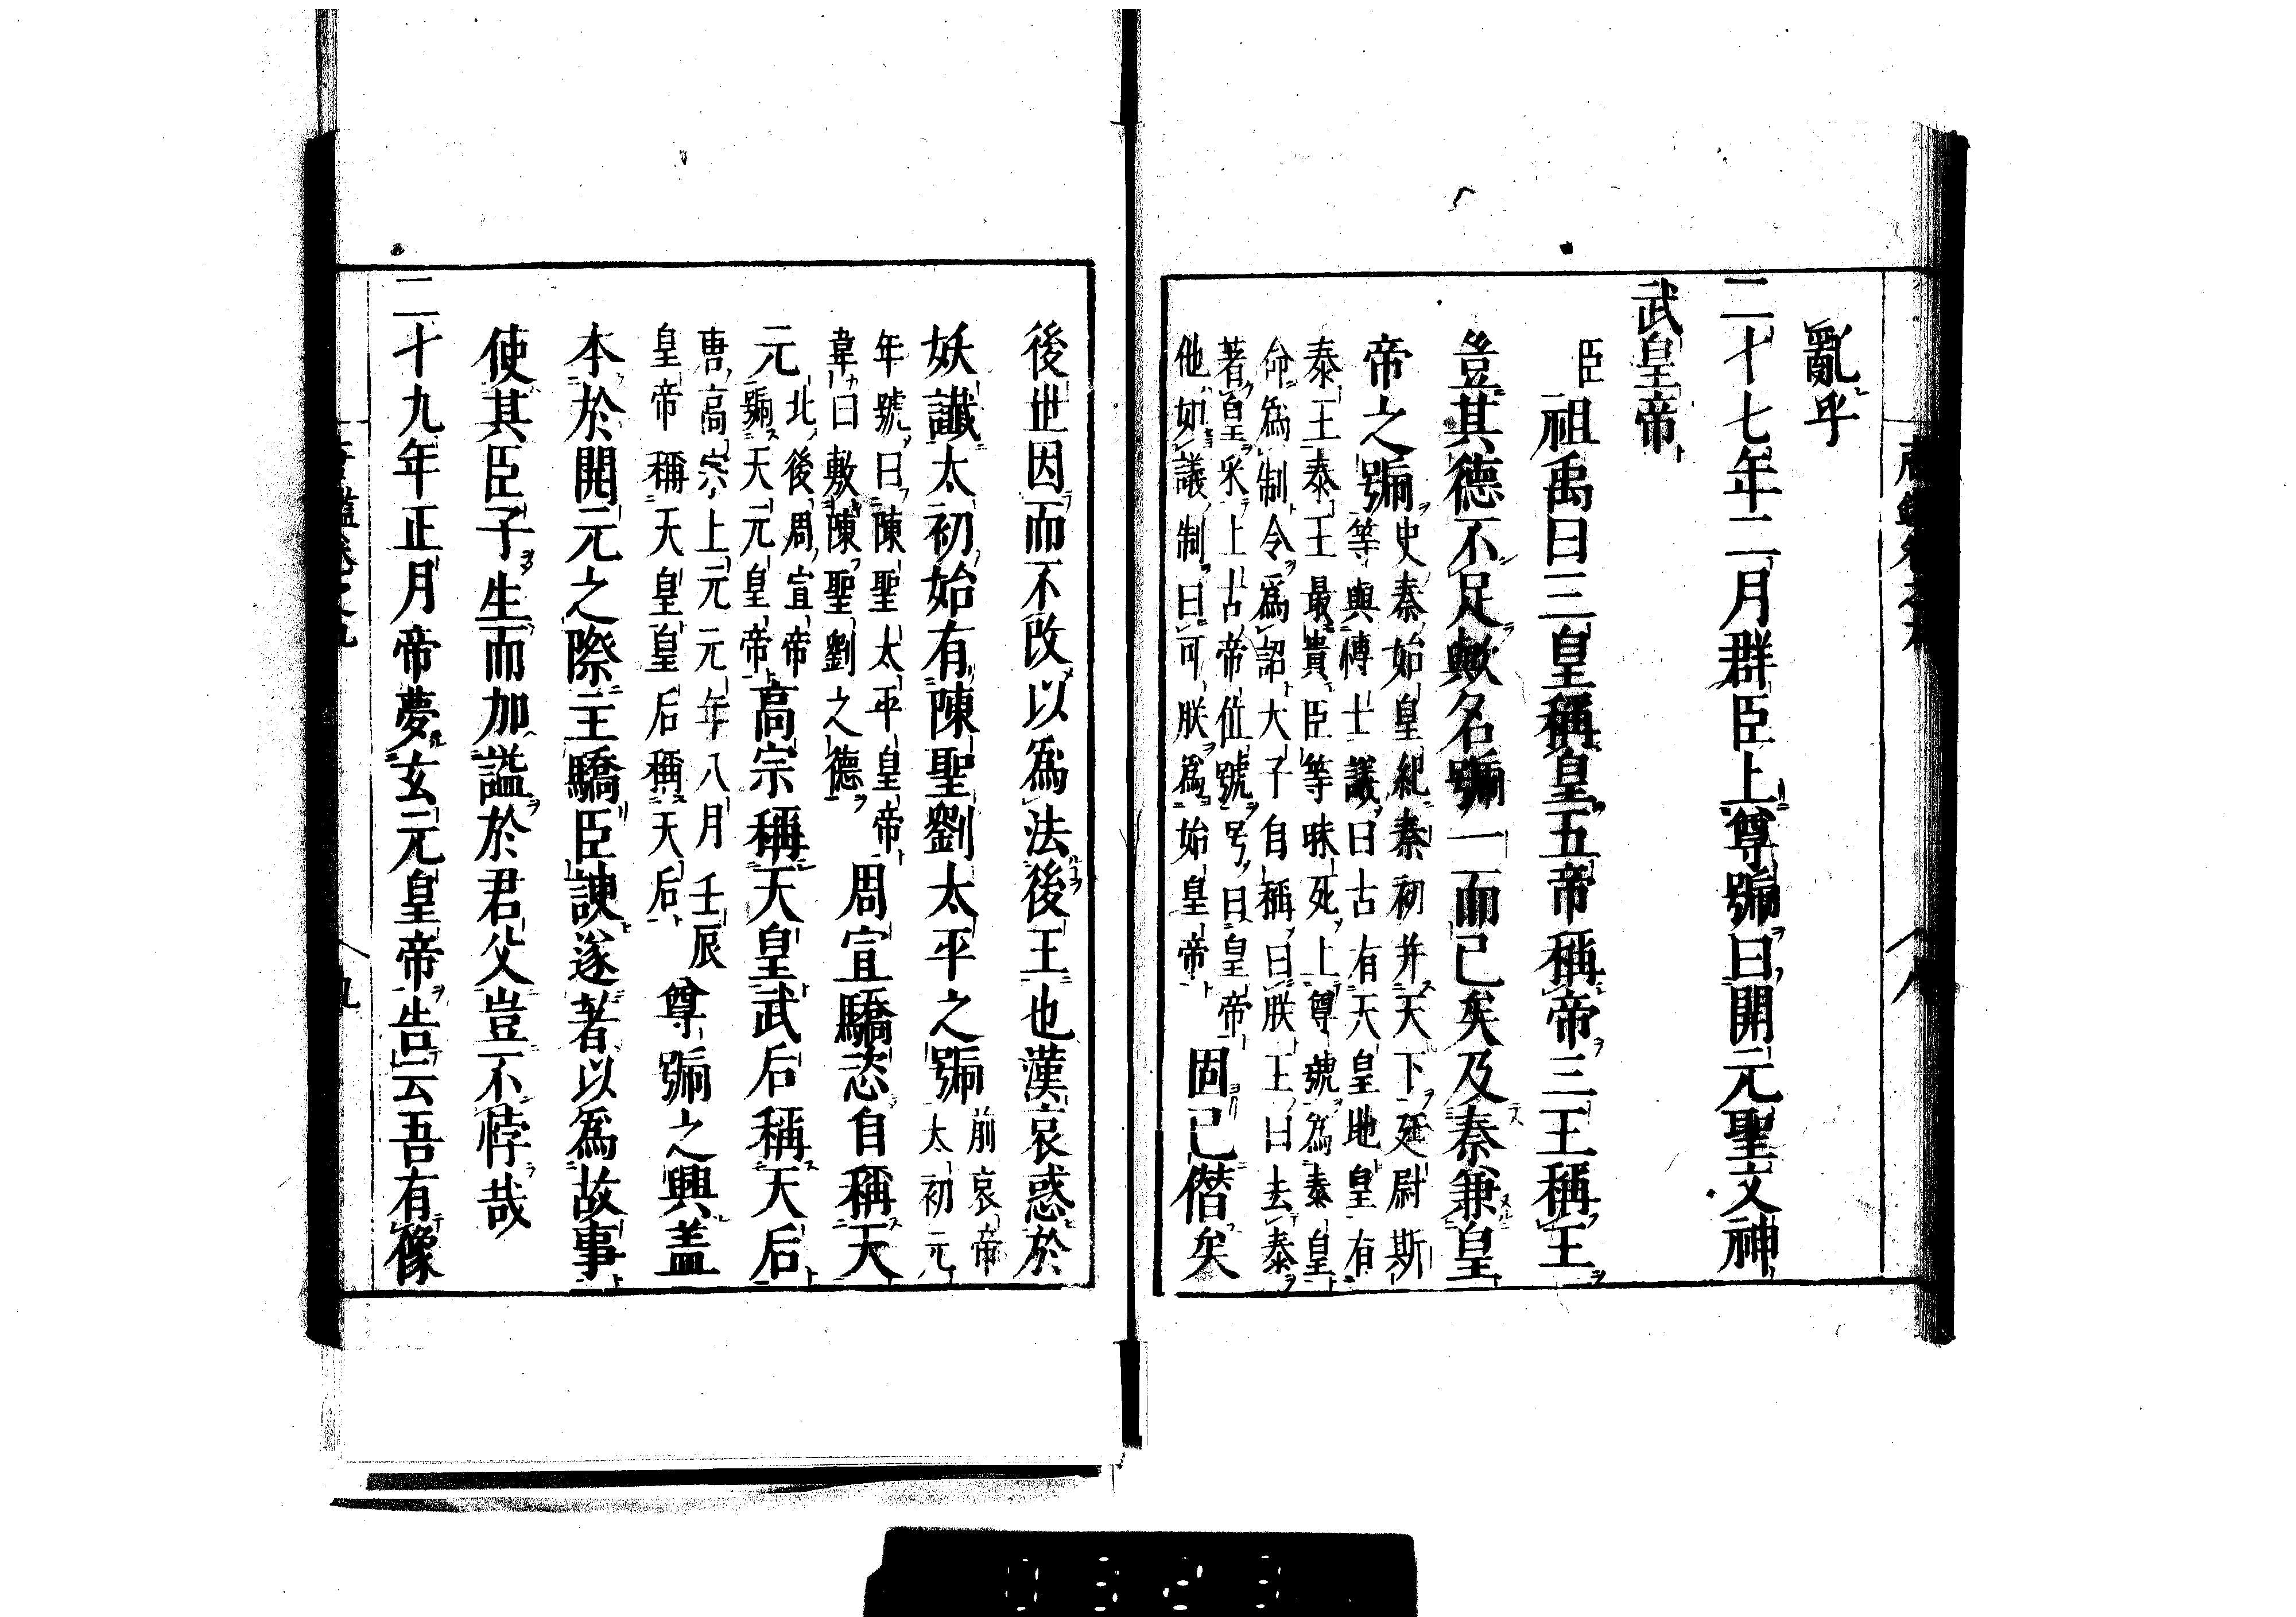 亂乎
二十七年二月群臣上尊號曰開元聖文神
武皇帝
臣祖禹曰三皇稱皇五帝稱帝三王稱王
豈其德不足歟名號一而已矣及秦兼皇
帝之號
史秦始皇紀秦初并天下廷尉斯
等與博士議曰古有天皇地皇有
泰王泰王最貴臣等昧死上尊號爲秦皇
命爲制令爲詔天子自稱曰朕王曰去泰
著皇采上古帝位號号曰皇帝
他如議制曰可朕爲始皇帝
固已僭矣
後世因而不改以爲法後王也漢哀惑於
妖讖太初始有陳聖劉太平之號
前哀帝
太初元
年號曰陳聖太平皇帝
韋曰敷陳聖劉之德
周宣驕恣自稱天
元
北後周宣帝
號天元皇帝
高宗稱天皇武后稱天后
唐高宗上元元年八月壬辰
皇帝稱天皇皇后稱天后
尊號之興蓋
本於開元之際主驕臣諛遂著以爲故事
使其臣子生而加謚於君父豈不悖哉
二十九年正月帝夢玄元皇帝告云吾有像